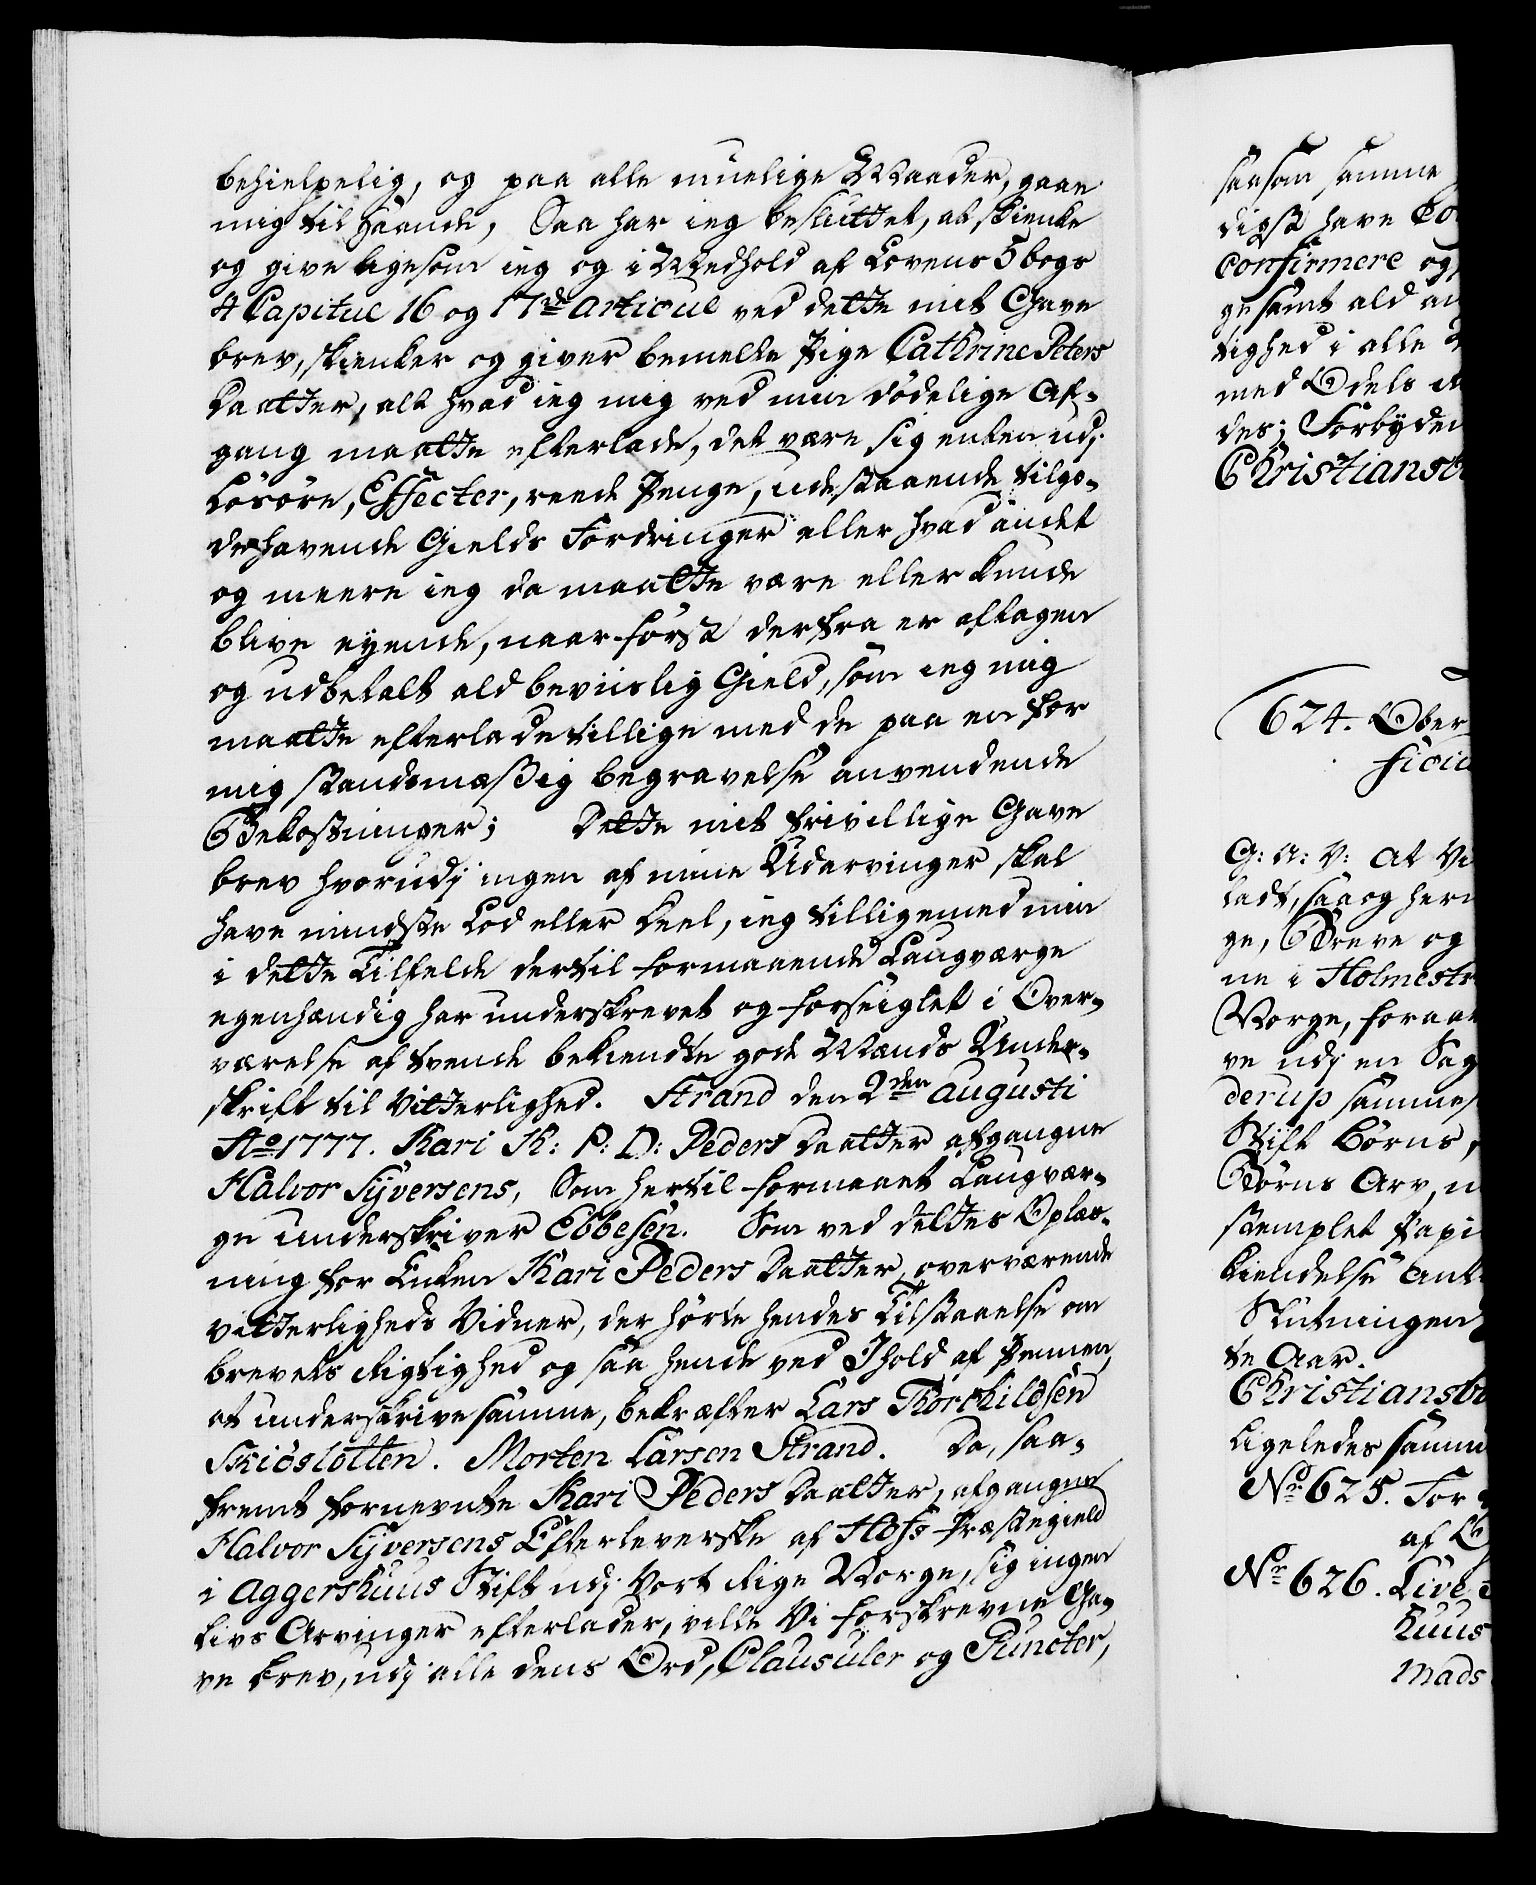 behielpelig, og paa alle muelige Maader, gaae
mig til Haande, Saa har ieg besluttet, at skienke
og give ligesom ieg og i Medhold af Lovens 5 bogs
4 Capitul 16 og 17de Articul ved dette mit Gave
brev, skienker og giver bemelte Pige Cathrine Peters
Daatter, alt hvad ieg mig ved min dödelige Af-
gang maatte efterlade, det være sig enten udj
Lösöre, Effecter, reede Penge, udestaaende tilgo-
dehavende Gields Fordringer eller hvad andet
og meere ieg da maatte være eller kunde
blive eyende, naar först derfra er aftagen
og udbetalt ald beviislig Gield, som ieg mig
maatte efterlade tillige med de paa en for
mig standsmæssig begravelse anvendende
Bekostninger; Dette mit frivillige Gave
brev hvorudj ingen af mine Udarvinger skal
have mindste Lod eller Deel, ieg tilligemed min
i dette Tilfelde dertil formaaende Laugværge
egenhændig har underskrevet og forseiglet i Over-
værelse af tvende bekiendte gode Mænds Under-
skrift til Vitterlighed. Strand den 2den Augusti
Ao 1777. Kari K: P: D: Peders Daatter afgangne
Halvor Syversens, Som hertil formaaet Laugvær-
ge underskriver Ebbesen. Som ved dettes Oplæs-
ning for Enken Kari Peders Daatter, overværende
vitterligheds Vidner, der hörte hendes Tilstaaelse om
brevets Rigtighed og saa hende ved Ihold af Pennen,
at underskrive samme, bekræfter Lars Thorkildsen
Skiöslotten. Morten Larsen Strand. Da, saa-
fremt fornevnte Kari Peders Daatter, afgangne
Halvor Syversens Efterleverske af Hofs Præstegield
i Aggershuus Stift udj Vort Rige Norge, sig ingen
Livs Arvinger efterlader, ville Vi forskrevne Ga-
ve brev, udj alle dens Ord, Clausuler og Puncter,
saasom samme
digst have
Confirmere og
gesamt ald
tighed i alle
med Odels
des; Forbyden
Christiansb
624. Ober
G: A: V: At Vi
ladt, saa og her
ge, Breve og
ne i Holmestr
Norge, foraar
ve udj en Sag
derup sammes
Stift Börns,
Börns Arv,
stemplet Papi
kiendelse Ant
Slutningen
te Aar.
Christiansb
Ligeledes samm
No 625. For
af
Nr 626. Live
huus
Mads